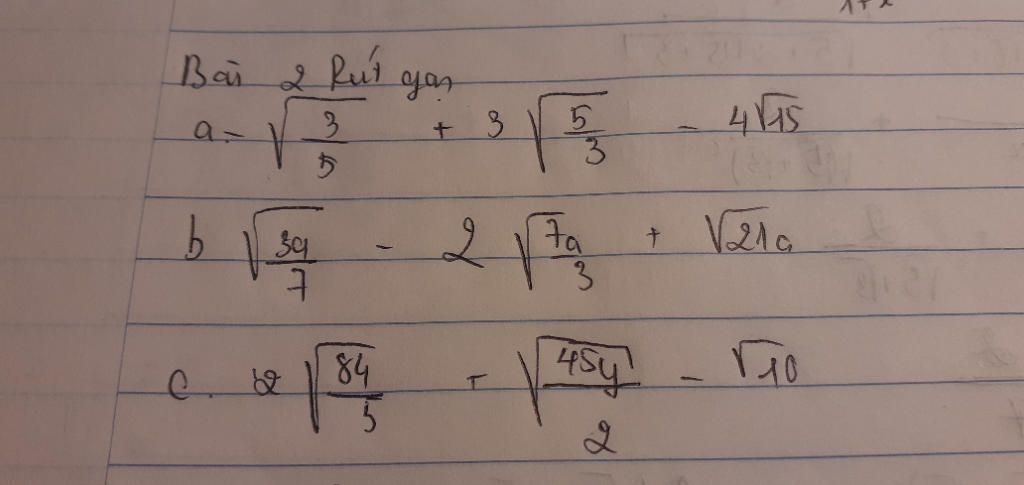 Bài 2 Rút gọn
a - √(3/5) + 3 √(5/3) - 4√15
b √(3a/7) - 2 √(7a/3) + √21a
c. 2 √(84/5) + √(45y/2) - √10